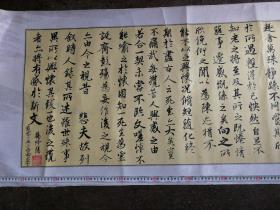 趣舍萬殊靜躁不同當其
於所遇蹔得於己快然自足不
知老之將至及其所之既惓情
隨事遷感慨係之矣向之所
欣俛仰之閒以為陳迹猶不
能不以之興懷況脩短隨化終
期於盡古人云死生亦大矣豈
不痛哉每攬昔人興感之由
若合一契未嘗不臨文嗟悼不
能喻之於懷固知一死生為虛
誕齊彭殤為妄作後之視今
亦由今之視昔 悲夫故列
敘時人錄其所述雖世殊事
異所以興懷其致一也後之攬
者亦將有感於斯文